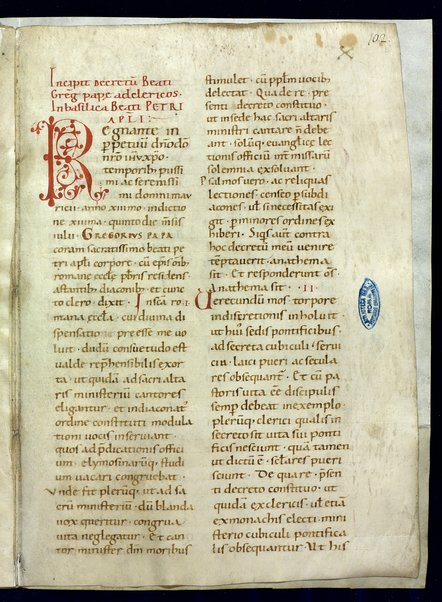 102
Incipit decretū Beati
Greg pape ad clericos.
In basilica Beati PETRI
APLI:
Regnante in
ppetuū dn̄o dō
nr̄o ihū xpo·
temporib· pissi
mi ac serenissi
mi domni mau
ricii· anno xiii mo· indictio
ne xiii ma· quinto die m̄sis
iulii· GREGORIUS PAPA
coram sacratissimo beati pe
tri apl̄i corpore· cū ep̄is om̄ib·
romane eccl̄e p̄bris residens
astantib· diaconib· et cunc
to clero· dixit· In sca ro
mana eccl̄a· cui divina di
spensatio preesse me vo
luit· dudū consuetudo est
valde reprhensibilis exor
ta· ut quidā ad sacri alta
ris ministeriū cantores
eligantur· et in diaconat'
ordine constituti modula
tioni vocis inserviant·
quos ad p̄dicationis offici
um· elymosinarūq; studi
um vacari congruebat·
Unde fit plerūq; ut ad sa
crū ministeriū· dū blanda
vox queritur· congrua
vita neglegatur· Et can
tor minister dm̄ moribus
stimulet· cū pp̄lm vocib;
delectat· Qua de re· pre
senti decreto constituo·
ut in sede hac sacri altaris
ministri cantare n̄ debe
ant· solūq; evanglicę lec
tionis officiū int̄ missarū
solemnia exsolvant·
Psalmos vero· ac reliquas
lectiones· censeo p subdi
acones· ul̄ si necessitas exi
git· p minores ordines ex
hiberi· Siqs aut̄ contra
hoc decretū meū venire
temptaverit· anathema
sit· Et responderunt om̄s·
Anathema sit· II·
Verecundū mos torpore
indiscretionis inholuit·
ut hui' sedis pontificibus·
ad secreta cubiculi servi
cia· laici pueri ac secula
res obsequant̄· Et cū pa
storis vita ee discipulis
semp debeat in exemplo·
plerūq; clerici qualis in
secreto sit vita sui ponti
ficis nesciunt· quā tamen
ut dictū ē· seclares pueri
sciunt· De qua re· p̄sen
ti decreto constituo· ut
quidā ex clericis· ul̄ etiā
ex monachis electi· mini
sterio cubiculi pontifica
lis obsequantur· Ut his